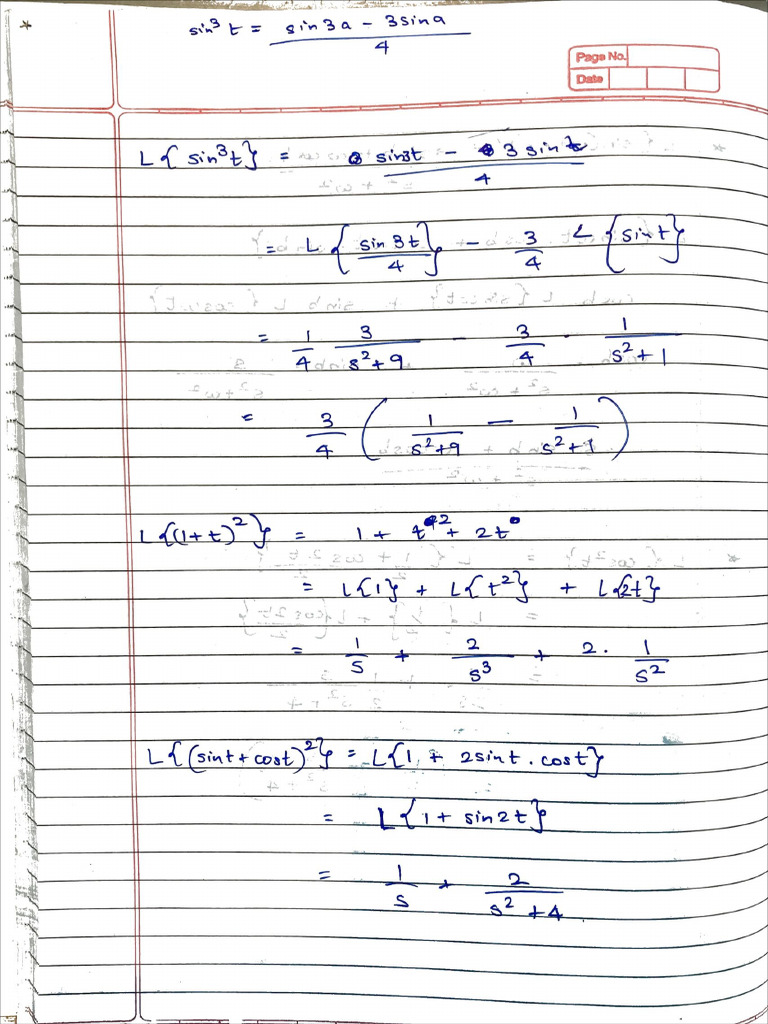 * sin³ t = (sin 3a - 3 sin a) / 4
Page No.
Date
L{sin³t} = (sin3t - 3 sin t) / 4
= L{sin 3t / 4} - 3/4 L{sin t}
= 1/4 3/(s²+9) - 3/4 · 1/(s²+1)
= 3/4 (1/(s²+9) - 1/(s²+1))
L{(1+t)²} = 1 + t² + 2t
= L{1} + L{t²} + L{2t}
= 1/s + 2/s³ + 2 · 1/s²
L{(sint + cost)²} = L{1 + 2sint . cost}
= L{1 + sin2t}
= 1/s + 2/(s² + 4)